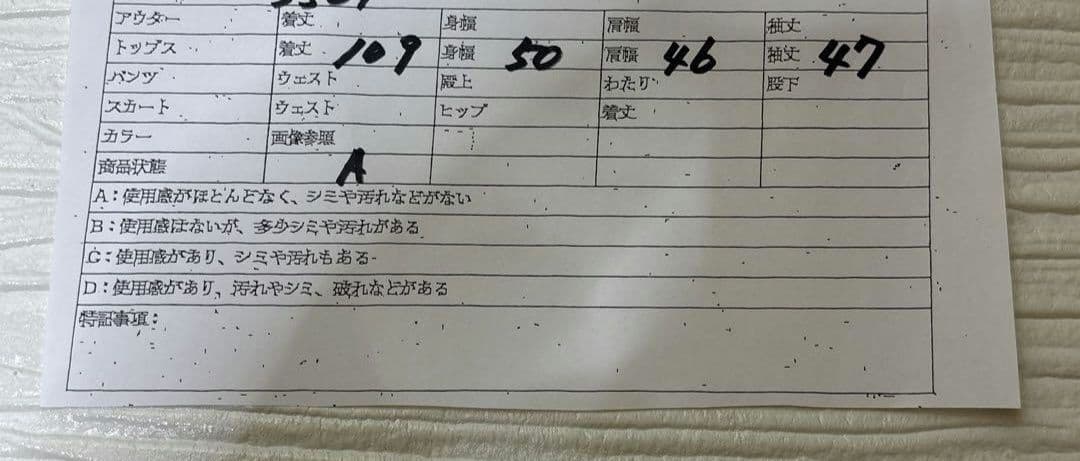 アウター 着丈 身幅 肩幅 袖丈
トップス 着丈 109 身幅 50 肩幅 46 袖丈 47
パンツ ウェスト 殿上 わたり 股下
スカート ウェスト ヒップ 着丈
カラー 画像参照
商品状態 A
A:使用感がほとんどなく、シミや汚れなどがない
B:使用感はないが、多少シミや汚れがある
C:使用感があり、シミや汚れもある
D:使用感があり、汚れやシミ、破れなどがある
特記事項: